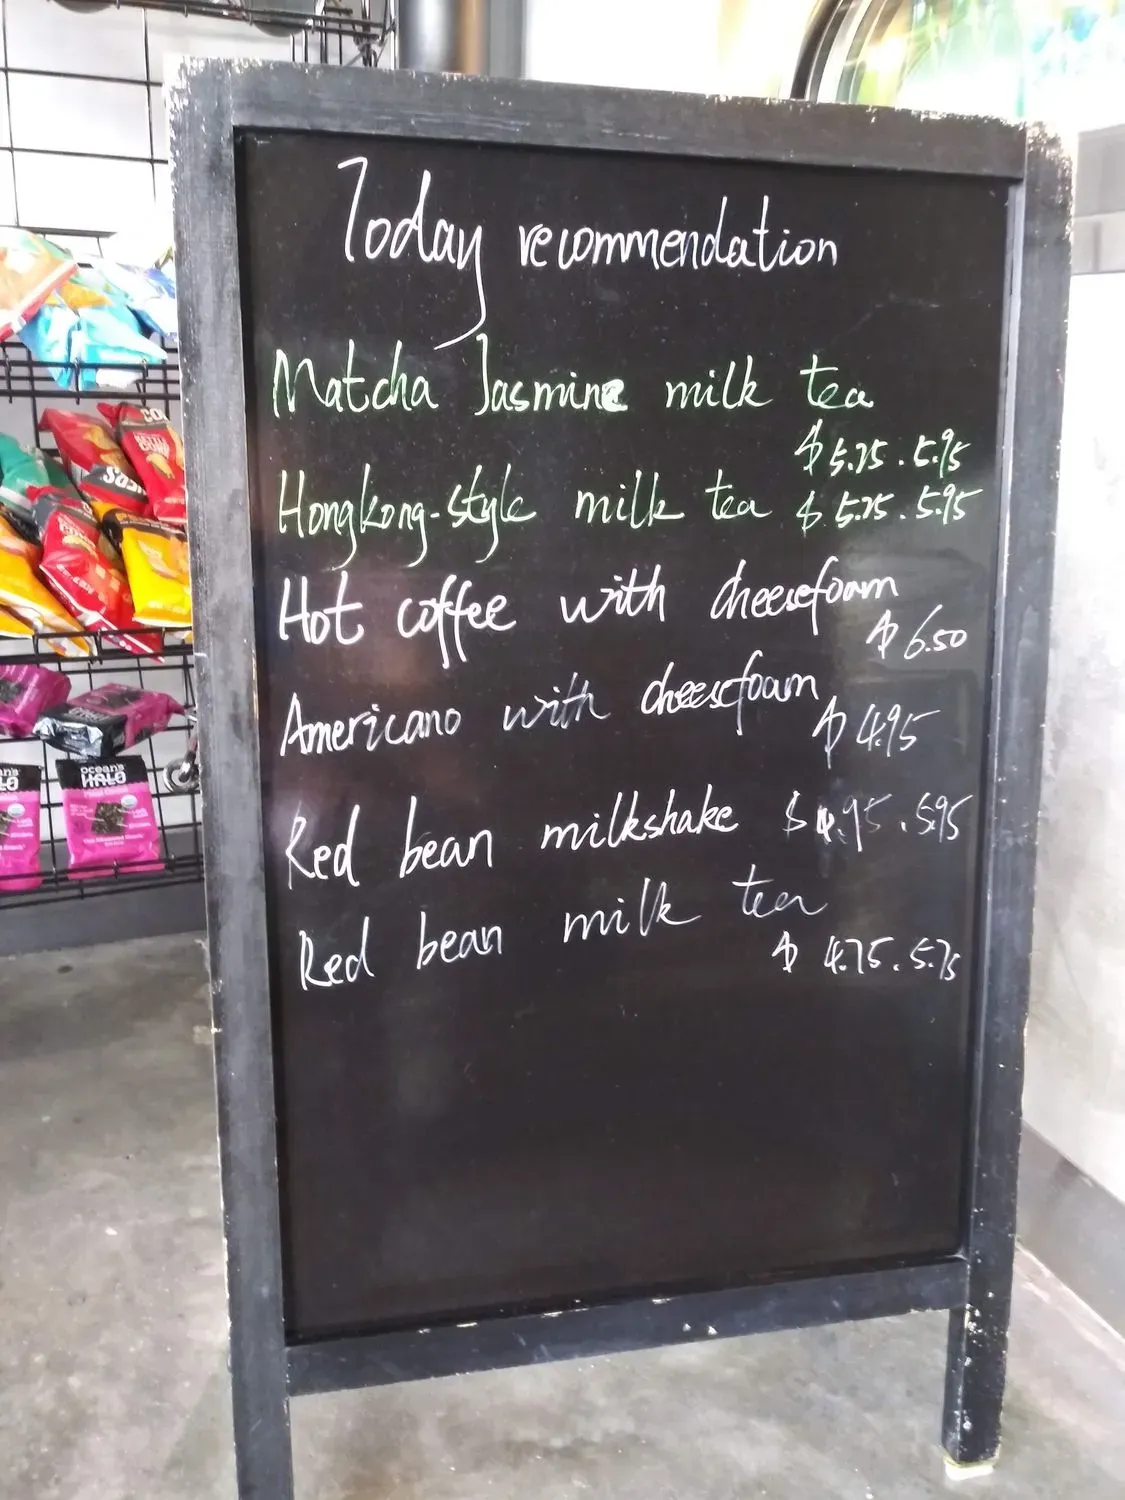 Today recommendation
Matcha Jasmine milk tea
$ 5.25 . 5.95
Hongkong-style milk tea $ 5.25 . 5.95
Hot coffee with cheesefoam
$ 6.50
Americano with cheesefoam
$ 4.95
Red bean milkshake $ 4.95 . 5.95
Red bean milk tea
$ 4.75 . 5.75
ocean's
HALO